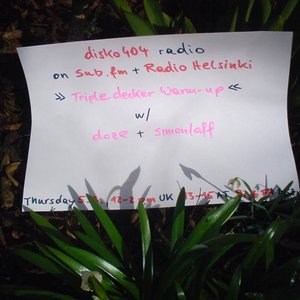 disko404 radio
on sub.fm + Radio Helsinki
» Triple decker Warm-up «
w/
doze + simon/off
Thursday 12-2 pm UK